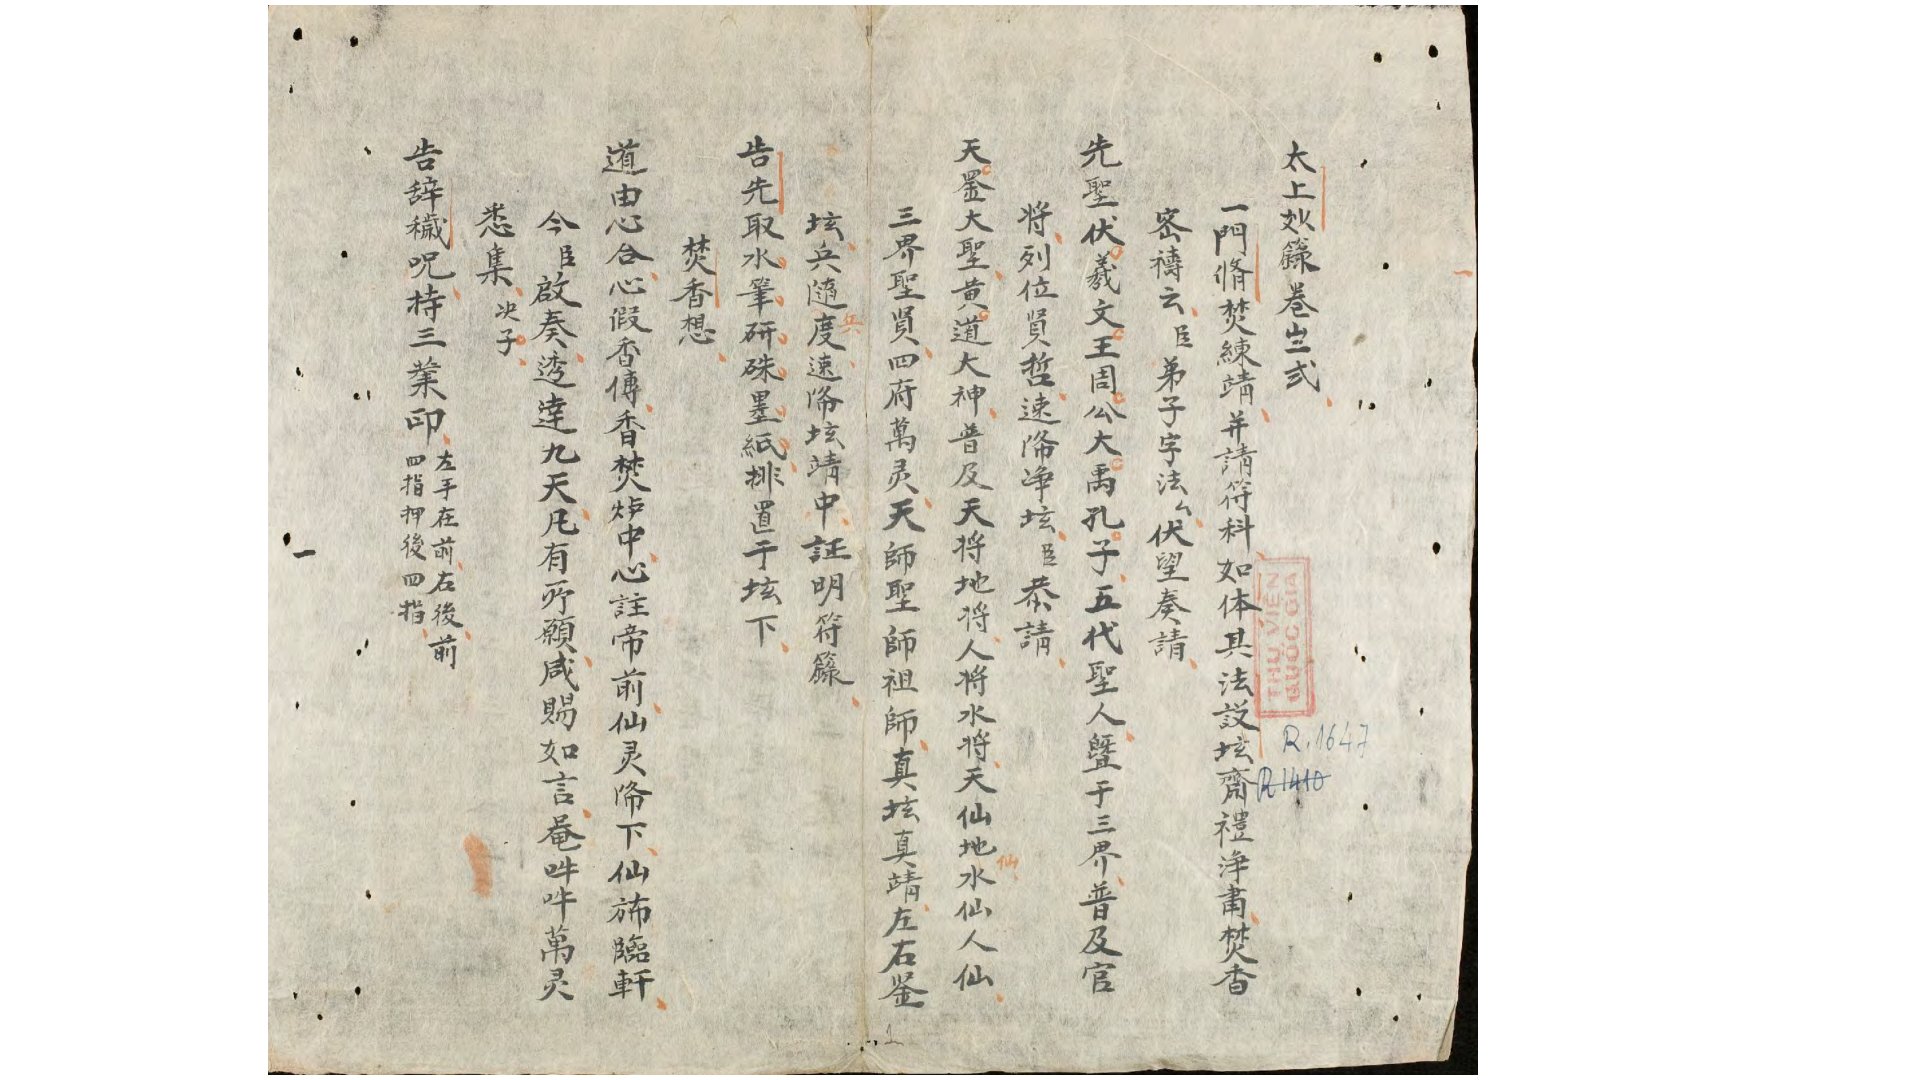 太上妙籙卷𠀧弍
一門脩焚練靖并請符科如体具法說坛齋禮淨肅焚香
密禱云臣弟子字法厶伏望奏請
先聖伏羲文王周公大禹孔子五代聖人曁于三界普及官
将列位賢哲速降净坛臣恭請
天罡大聖黄道大神普及天将地将人将水将天仙地水仙人仙
仙
三界聖賢四府萬灵天師聖師祖師真坛真靖左右鉴
坛兵隨度速降坛靖中証明符籙
兵
告先取水筆研硃墨紙排置于坛下
焚香想
道由心合心假香傳香焚炉中心註帝前仙灵降下仙斾臨軒
今臣啟奏透達九天凡有所願咸賜如言菴吽吽萬灵
悉集决子
告辞穢呪持三業印左手在前右後前
四指押後四指
一
THU VIEN
QUOC GIA
R.1647
R1410
1